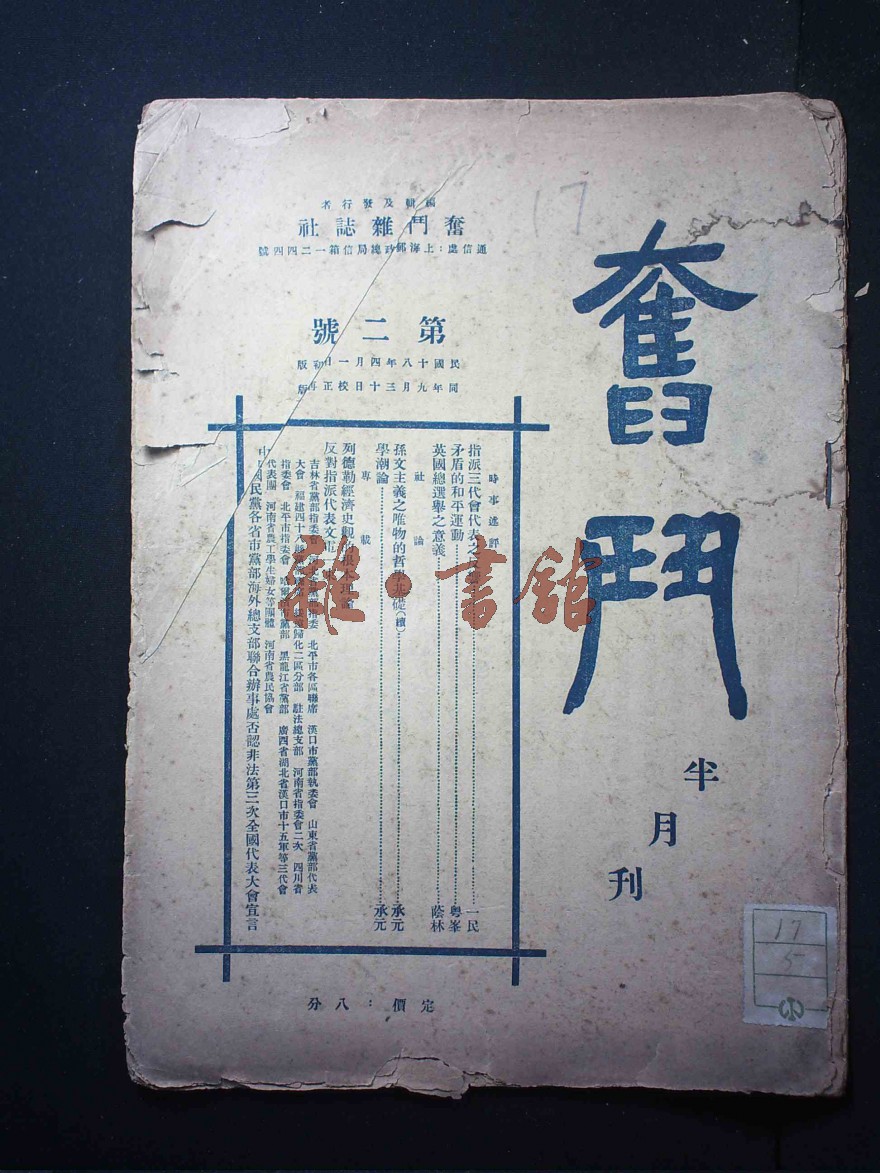 奮鬥
半月刊
編輯及發行者
奮鬥雜誌社
通信處：上海郵政總局信箱一二四四號
第二號
民國十八年四月一日初版
同年九月三十日校正再版
時事述評
指派三代會代表之 一民
矛盾的和平運動 粵峯
英國總選舉之意義 蔭林
社論
孫文主義之唯物的哲學基礎（續） 承元
學潮論 承元
專載
列德勒經濟史觀 根本理論
反對指派代表文電
吉林省黨部指委會 北平市各區聯席 漢口市黨部執委會 山東省黨部代表
大會 福建四十 歸化二區分部 駐法總支部 河南省指委會二次 四川省
指委會 北平市指委會 哈爾 黨部 黑龍江省黨部 廣西省湖北省漢口市十五軍等三代會
代表團 河南省農工學生婦女等團體 河南省農民協會
中國國民黨各省市黨部海外總支部聯合辦事處否認非法第三次全國代表大會宣言
定價：八分
雜·書館
17
17
5